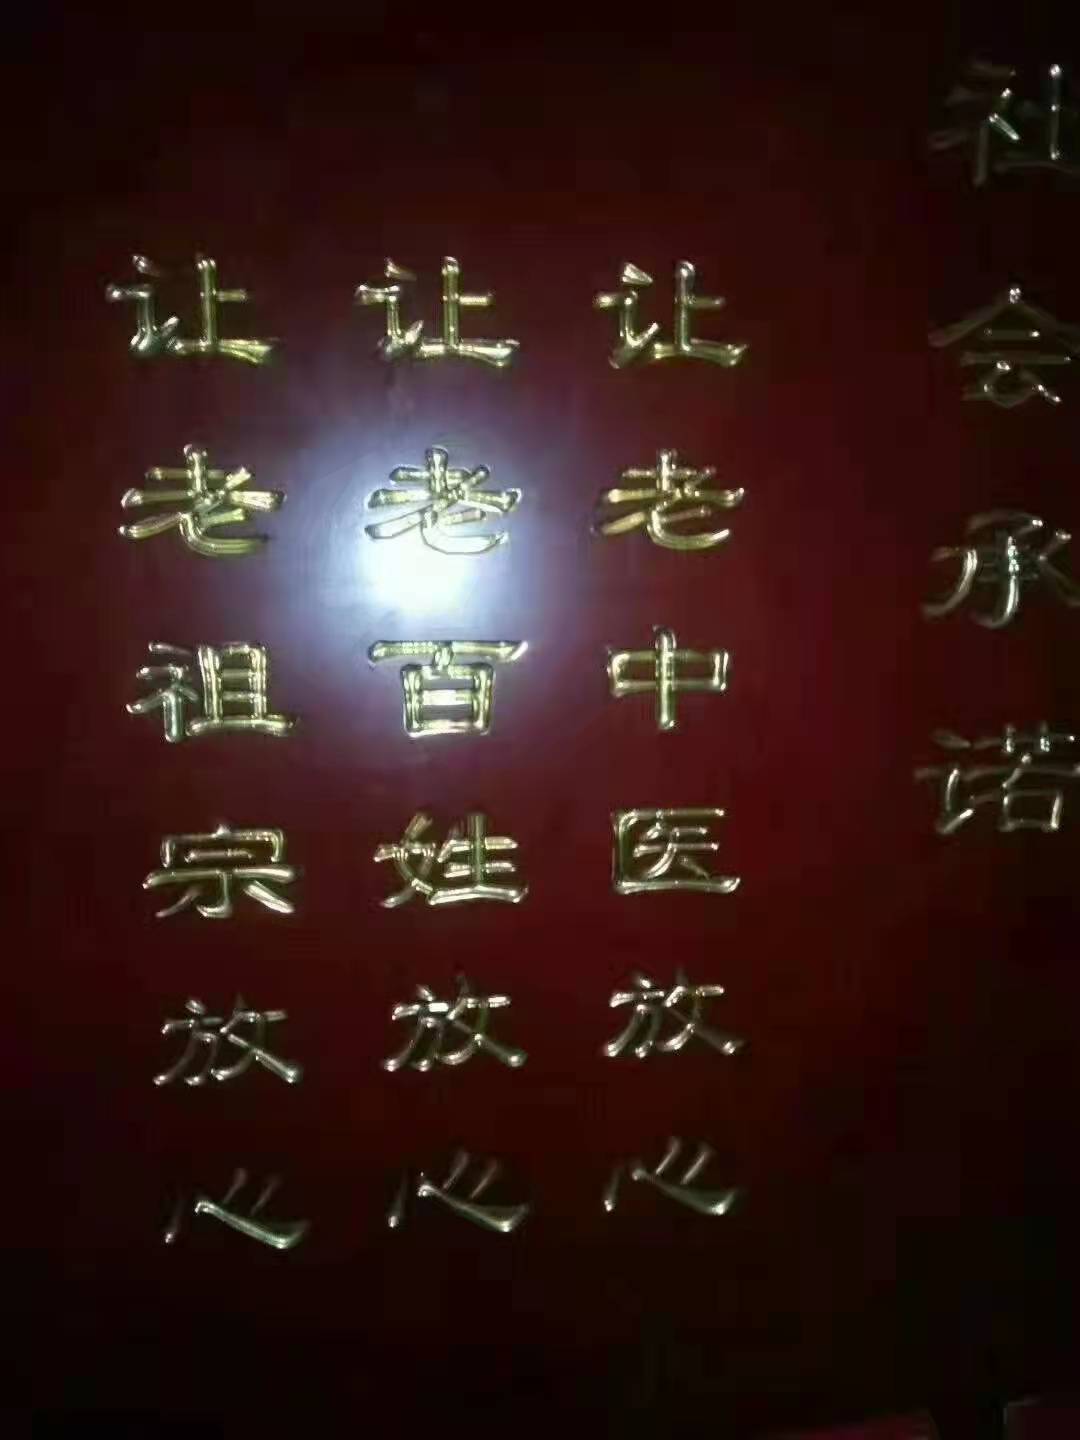 社会承诺
让老中医放心
让老百姓放心
让老祖宗放心